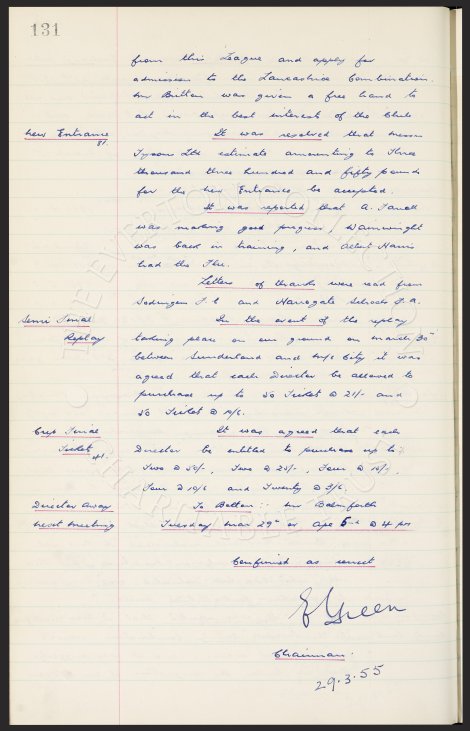 131
from this League and apply for
admission to the Lancashire Combination.
Mr Britton was given a free hand to
act in the best interest of the Club
New Entrance
It was resolved that Messrs
Tysons Ltd estimate amounting to Three
thousand three hundred and fifty pounds
for the New Entrances be accepted.
It was reported that A. Farrall
was making good progress, Wainwright
was back in training, and Albert Harris
had the Flu.
Letters of thanks were read from
F.C and Harrogate Schools F.A.
Semi Final
Replay
In the event of the replay
taking place on our ground on March 30th
between Sunderland and M/c City it was
agreed that each Director be allowed to
purchase up to 50 Tickets @ 21/- and
50 Tickets @ 10/6.
Cup Final
Tickets
It was agreed that each
Director be entitled to purchase up to:
Two @ 50/-, Two @ 25/-, Four @ 15/-,
Four @ 10/6 and Twenty @ 3/6.
Director Away
To Bolton :: Mr Balmforth
Next Meeting
Tuesday Mar 29th or Apl 5th @ 4 pm
Confirmed as correct
E Green
Chairman.
29.3.55
THE EVERTON COLLECTION
CHARITABLE TRUST